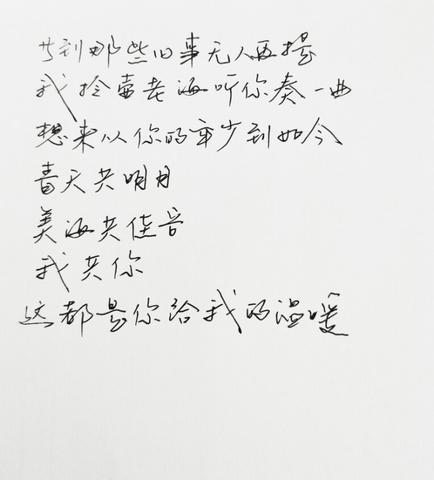 到那些旧事无人再提
我拎壶老酒听你奏一曲
想来从你的年少到如今
春天共明月
美酒共佳音
我共你
这都是你给我的温暖